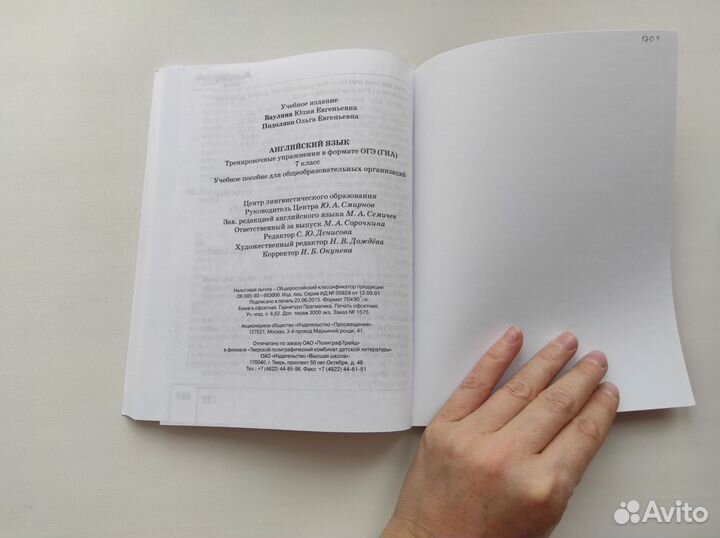 Учебное издание
Ваулина Юлия Евгеньевна
Подоляко Ольга Евгеньевна
АНГЛИЙСКИЙ ЯЗЫК
Тренировочные упражнения в формате ОГЭ (ГИА)
7 класс
Учебное пособие для общеобразовательных организаций
Центр лингвистического образования
Руководитель Центра Ю. А. Смирнов
Зав. редакцией английского языка М. А. Семичев
Ответственный за выпуск М. А. Сорочкина
Редактор С. Ю. Денисова
Художественный редактор Н. В. Дождёва
Корректор И. Б. Окунева
Налоговая льгота – Общероссийский классификатор продукции
ОК 005-93—953000. Изд. лиц. Серия ИД № 05824 от 12.09.01
Подписано в печать 23.06.2015. Формат 70X90 1/16.
Бумага офсетная. Гарнитура Прагматика. Печать офсетная.
Уч.-изд. л. 6,62. Доп. тираж 3000 экз. Заказ № 1575.
Акционерное общество «Издательство «Просвещение».
127521, Москва, 3-й проезд Марьиной рощи, 41.
Отпечатано по заказу ОАО «ПолиграфТрейд»
в филиале «Тверской полиграфический комбинат детской литературы»
ОАО «Издательство «Высшая школа».
170040, г. Тверь, проспект 50 лет Октября, д. 46
Тел.: +7 (4822) 44-85-98. Факс: +7 (4822) 44-61-51
Avito